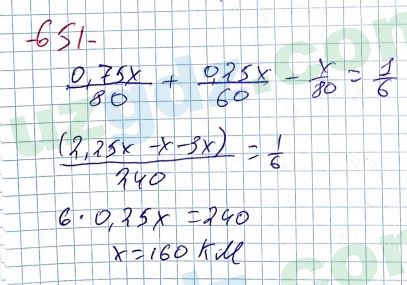 -651-
0,75x/80 + 0,25x/60 - x/80 = 1/6
(2,25x - x - 3x)/240 = 1/6
6 · 0,25x = 240
x = 160 КМ